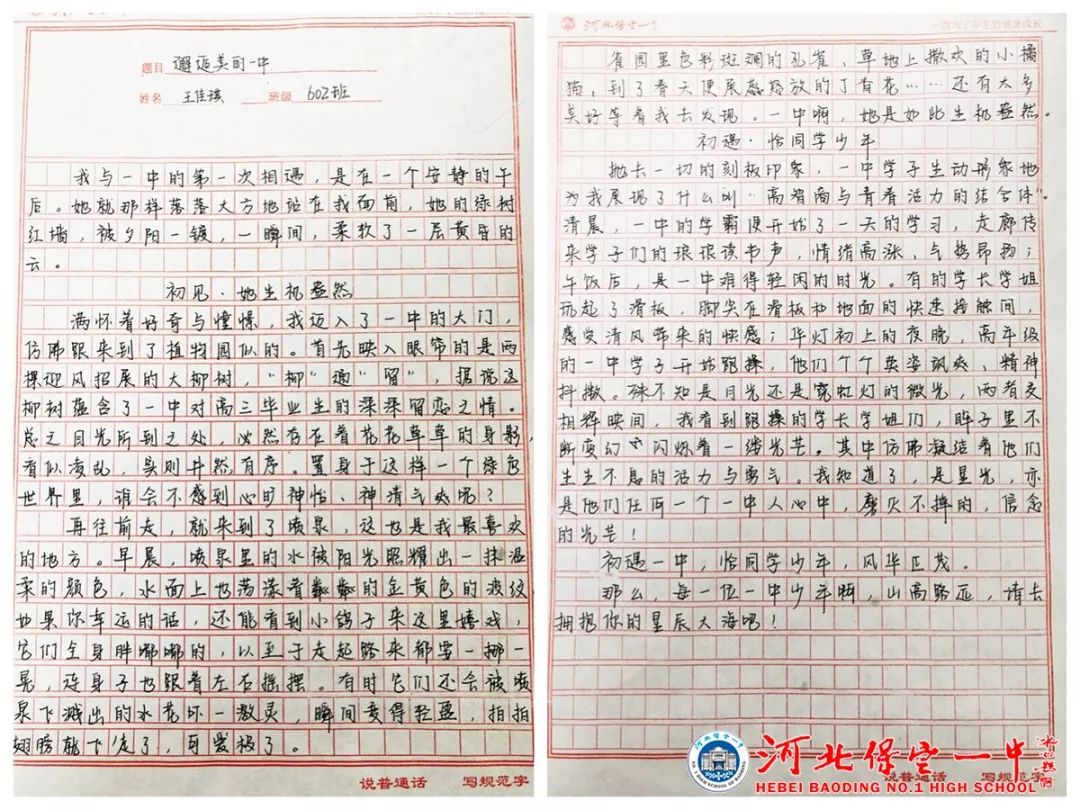 题目 邂逅美的一中
姓名 王佳琪 班级 602班
我与一中的第一次相遇，是在一个安静的午
后。她就那样落落大方地站在我面前，她的绿树
红墙，被夕阳一镀，一瞬间，柔软了一层黄昏的
云。
初见·她生机盎然
满怀着好奇与憧憬，我迈入了一中的大门，
仿佛跟来到了植物园似的。首先映入眼帘的是两
棵迎风招展的大柳树，“柳”通“留”，据说这
柳树蕴含了一中对高三毕业生的深深留恋之情。
总之目光所到之处，必然存在着花花草草的身影，
看似凌乱，实则井然有序。置身于这样一个绿色
世界里，谁会不感到心旷神怡、神清气爽呢？
再往前走，就来到了喷泉，这也是我最喜欢
的地方。早晨，喷泉里的水被阳光照耀出一抹温
柔的颜色，水面上也荡漾着粼粼的金黄色的波纹
如果你幸运的话，还能看到小鸽子来这里嬉戏，
它们全身胖嘟嘟的，以至于走起路来都要一挪一
晃，连身子也跟着左右摇摆。有时它们还会被喷
泉飞溅出的水花吓一激灵，瞬间变得轻盈，拍拍
翅膀就飞走了，可爱极了。
说普通话 写规范字
河北保定一中
一切为了学生的健康成长
雀园里色彩斑斓的孔雀、草地上撒欢的小橘
猫，到了春天便展蕊怒放的丁香花……还有太多
美好等着我去发现。一中啊，她是如此生机盎然。
初遇·恰同学少年
抛去一切的刻板印象，一中学子生动形象地
为我展现了什么叫“高智商与青春活力的结合体”
清晨，一中的学霸便开始了一天的学习，走廊传
来学子们的琅琅读书声，情绪高涨、气势昂扬；
午饭后，是一中难得轻闲的时光。有的学长学姐
玩起了滑板，脚尖在滑板和地面的快速接触间，
感受清风带来的快感；华灯初上的夜晚，高年级
的一中学子开始跑操，他们个个英姿飒爽、精神
抖擞。殊不知是月光还是霓虹灯的微光，两者交
相辉映间，我看到跑操的学长学姐们，眸子里不
断变幻、闪烁着一缕光芒。其中仿佛凝结着他们
生生不息的活力与勇气。我知道了，是星光，亦
是他们任何一个一中人心中，磨灭不掉的，信念
的光芒！
初遇一中，恰同学少年，风华正茂。
那么，每一位一中少年啊，山高路远，请去
拥抱你的星辰大海吧！
说普通话 写规范字
河北保定一中
HEBEI BAODING NO.1 HIGH SCHOOL